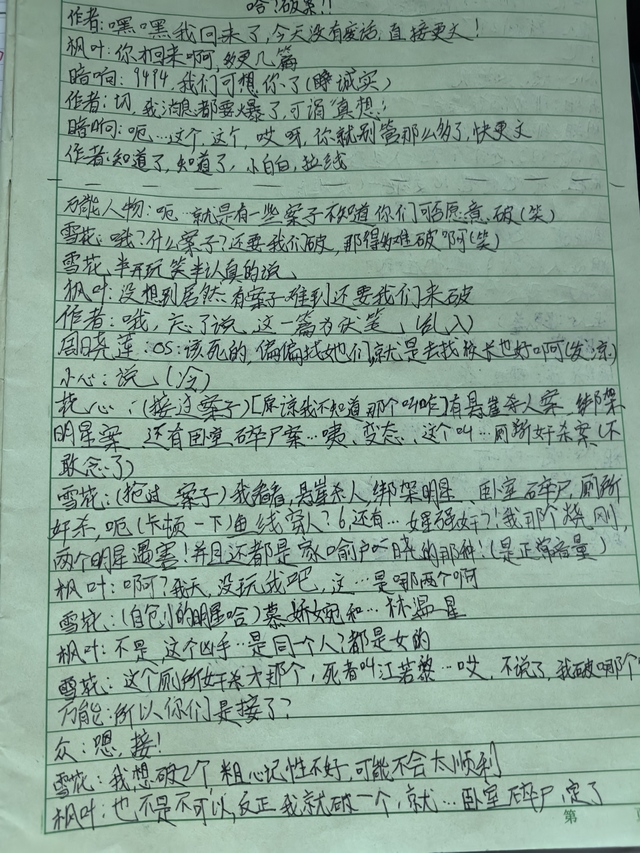 哈!破案!!
作者:嘿嘿我回来了,今天没有废话,直接更文!
枫叶:你才回来啊,多更几篇
暗响:9494,我们可想你了(睁诚实)
作者:切,我消息都要爆了,可谓"真想!
暗响:呃…这个,这个,哎呀,你就别管那么多了,快更文
作者:知道了,知道了,小白白,拉线
万能人物:呃…就是有一些案子不知道你们可否愿意破(笑)
雪花:哦?什么案子?还要我们破,那得多难破啊(笑)
雪花半开玩笑半认真的说
枫叶:没想到居然有案子难到还要我们来破
作者:哦,忘了说,这一篇为伏笔,(乱入)
周晓莲:OS:该死的,偏偏找她们,就是去找校长也好啊(发凉)
小心:说(冷)
花心:(接过案子)[原谅我不知道那个叫咋]有悬崖杀人案,绑架
明星案,还有卧室碎尸案…咦,变态,这个叫…厕所奸杀案(不
敢念了)
雪花:(抢过案子)我看看,悬崖杀人,绑架明星,卧室碎尸,厕所
奸杀,呃(卡顿一下)鱼线穿人?6,还有…强奸?!我那个烧,刚,
两个明星遇害!并且还都是家喻户晓的那种!(是正常音量)
枫叶:啊?我天,没玩我吧,这…是哪两个啊
雪花:(自创的明星哈)慕娇婉和…林温星
枫叶:不是,这个凶手…是同一个人?都是女的
雪花:这个厕所奸杀大那个,死者叫江若黎…哎,不说了,我破哪个
万能:所以你们是接了?
众:嗯,接!
雪花:我想破2个,粗心记性不好,可能不会太顺利
枫叶:也不是不可以,反正我就破一个,就…卧室碎尸,定了
第 页